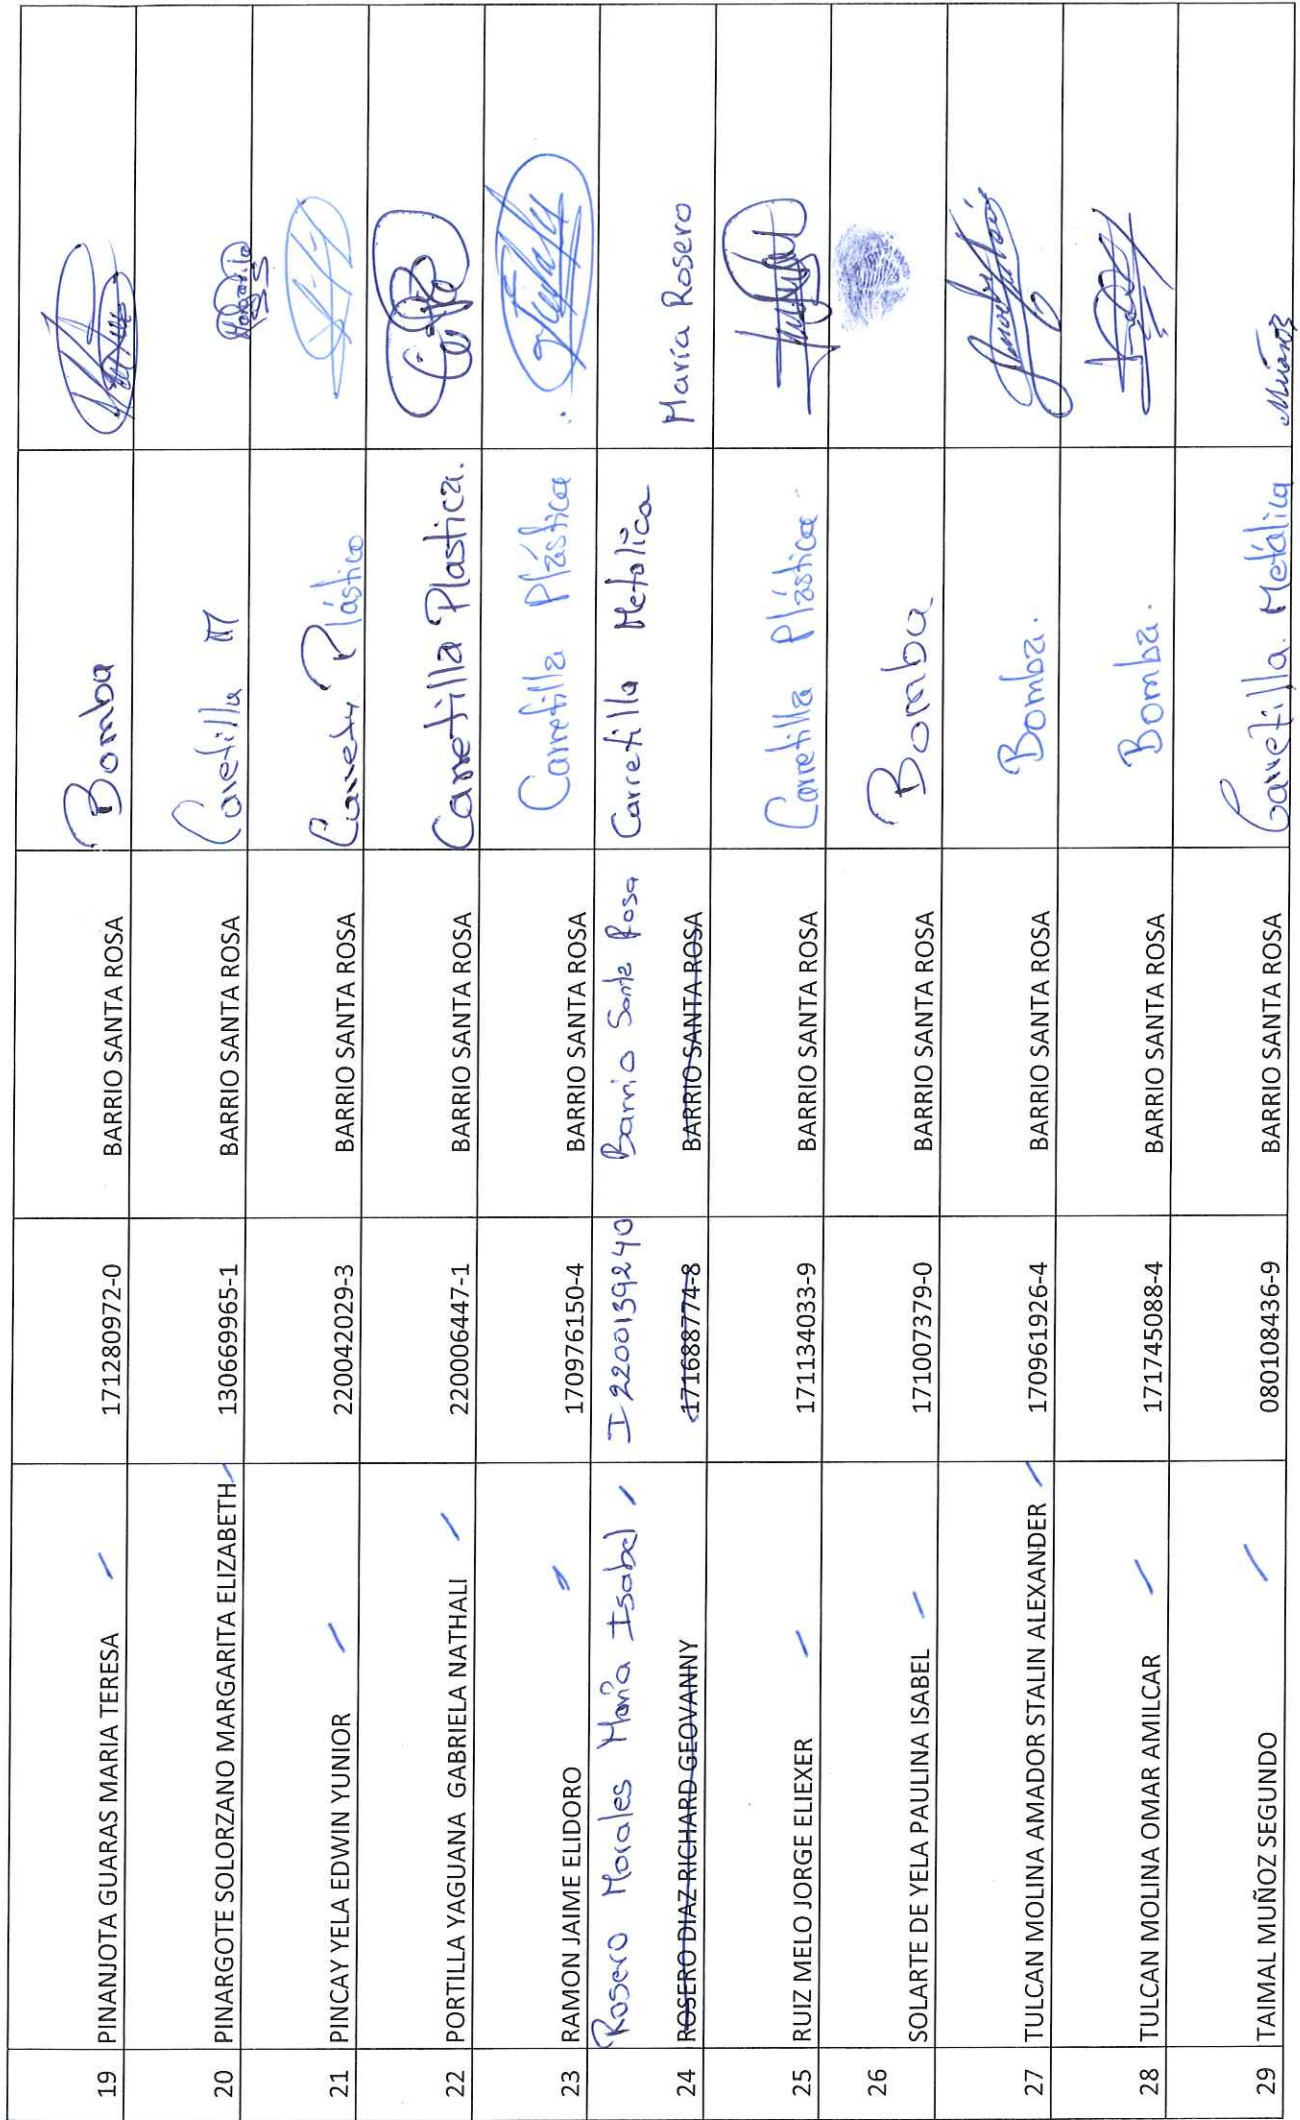 19 PINANJOTA GUARAS MARIA TERESA 171280972-0 BARRIO SANTA ROSA Bomba
20 PINARGOTE SOLORZANO MARGARITA ELIZABETH 130669965-1 BARRIO SANTA ROSA Caretilla M Margarita
21 PINCAY YELA EDWIN YUNIOR 220042029-3 BARRIO SANTA ROSA Plástico
22 PORTILLA YAGUANA GABRIELA NATHALI 220006447-1 BARRIO SANTA ROSA Carretilla Plastica.
23 RAMON JAIME ELIDORO 170976150-4 BARRIO SANTA ROSA Carretilla Plástica
Rosero Morales María Isabel I 2200139240 Barrio Santa Rosa Carretilla Metalica
24 ROSERO DIAZ RICHARD GEOVANNY 171688774-8 BARRIO SANTA ROSA María Rosero
25 RUIZ MELO JORGE ELIEXER 171134033-9 BARRIO SANTA ROSA Carretilla Plástica
26 SOLARTE DE YELA PAULINA ISABEL 171007379-0 BARRIO SANTA ROSA Bomba
27 TULCAN MOLINA AMADOR STALIN ALEXANDER 170961926-4 BARRIO SANTA ROSA Bomba.
28 TULCAN MOLINA OMAR AMILCAR 171745088-4 BARRIO SANTA ROSA Bomba.
29 TAIMAL MUÑOZ SEGUNDO 080108436-9 BARRIO SANTA ROSA Carretilla. Metálica Muñoz